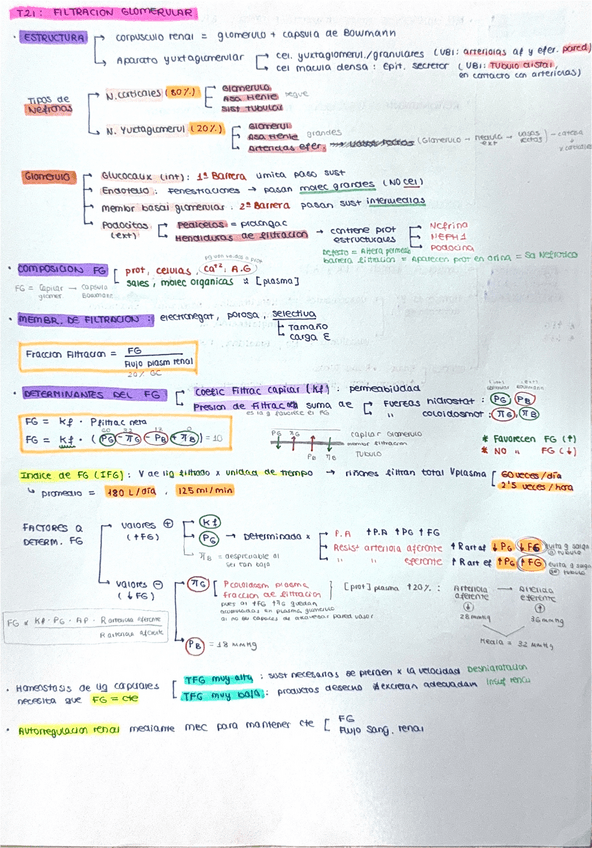 T21: FILTRACIÓN GLOMERULAR
· ESTRUCTURA → corpusculo renal = glomerulo + capsula de Bowmann
→ Aparato yuxtaglomerular → cel. yuxtaglomerul./granulares (UBI: arteriolas af y efer. pared)
→ cel macula densa: epit. secretor (UBI: TUBULO distal, en contacto con arteriolas)
TIPOS de Nefronas → N. corticales (80%) Glomerulo
Asa Henle
Sist Tubular
→ N. Yuxtaglomerul (20%) Glomerul
Asa Henle grandes
Arteriolas efer.
Glomerulo → Glucocalix (int): 1ª Barrera limita paso sust
→ Endotelio: Fenestraciones → pasan molec grandes (NO cel)
→ membr basal glomerular: 2ª Barrera pasan sust intermedias
→ Podocitos (ext) Pedicelos = prolongac
Hendiduras de filtracion → contiene prot estructurales → Nefrina
NEPH1
Podocina
Defecto = Altera permeab barrera filtracion = Aparecen prot en orina = Sd Nefrotico
· COMPOSICIÓN FG prot, celulas, Ca+2, A.G
sales, molec organicas ≈ [plasma]
FG = Capilar glomer → Capsula Bowmann
· MEMBR. DE FILTRACION: electronegat, porosa, selectiva
Tamaño
carga E
Fraccion Filtracion = FG / Flujo plasm renal
20% GC
· DETERMINANTES DEL FG Coefic Filtrac capilar (Kf): permeabilidad
Presion de Filtrac suma de Fuerzas hidrostat: PG PB
" coloidosmot: πG, πB
FG = kf · P filtrac neta
FG = kf · (PG - πG - PB + πB) = 10
60 32 18 0
PG πG capilar Glomerulo
membr filtracion
PB πB TUBULO
* Favorecen FG (↑)
* NO " FG (↓)
Indice de FG (IFG): V de liq filtrado x unidad de tiempo → riñones filtran total Vplasma 60 veces/dia
2'5 veces/hora
↳ promedio = 180 L/dia, 125 ml/min
FACTORES Q DETERM. FG → valores ⊕ (↑FG) kf
PG → Determinada x → P.A ↑P.A ↑PG ↑FG
→ Resist arteriola aferente ↑R art af ↓PG ↓FG
→ " " eferente ↑R art ef ↑PG ↑FG
πB = despreciable al ser tan baja
→ valores ⊖ (↓FG) → πG P coloidosm plasma
fraccion de filtracion
[prot] plasma ↑20%: Arteriola aferente → Arteriola eferente
28 mmHg 36 mmHg
Media = 32 mmHg
PB = 18 mmHg
FG x Kf · PG · ΔP · R arteriola eferente / R arteriola aferente
· Homeostasis de liq capilares necesita que FG = cte TFG muy alta: sust necesarias se pierden x la velocidad Deshidratacion
TFG muy baja: productos desecho ∄ excretan adecuadam Insuf renal
· Autorregulacion renal mediante mec para mantener cte FG
Flujo sang. renal